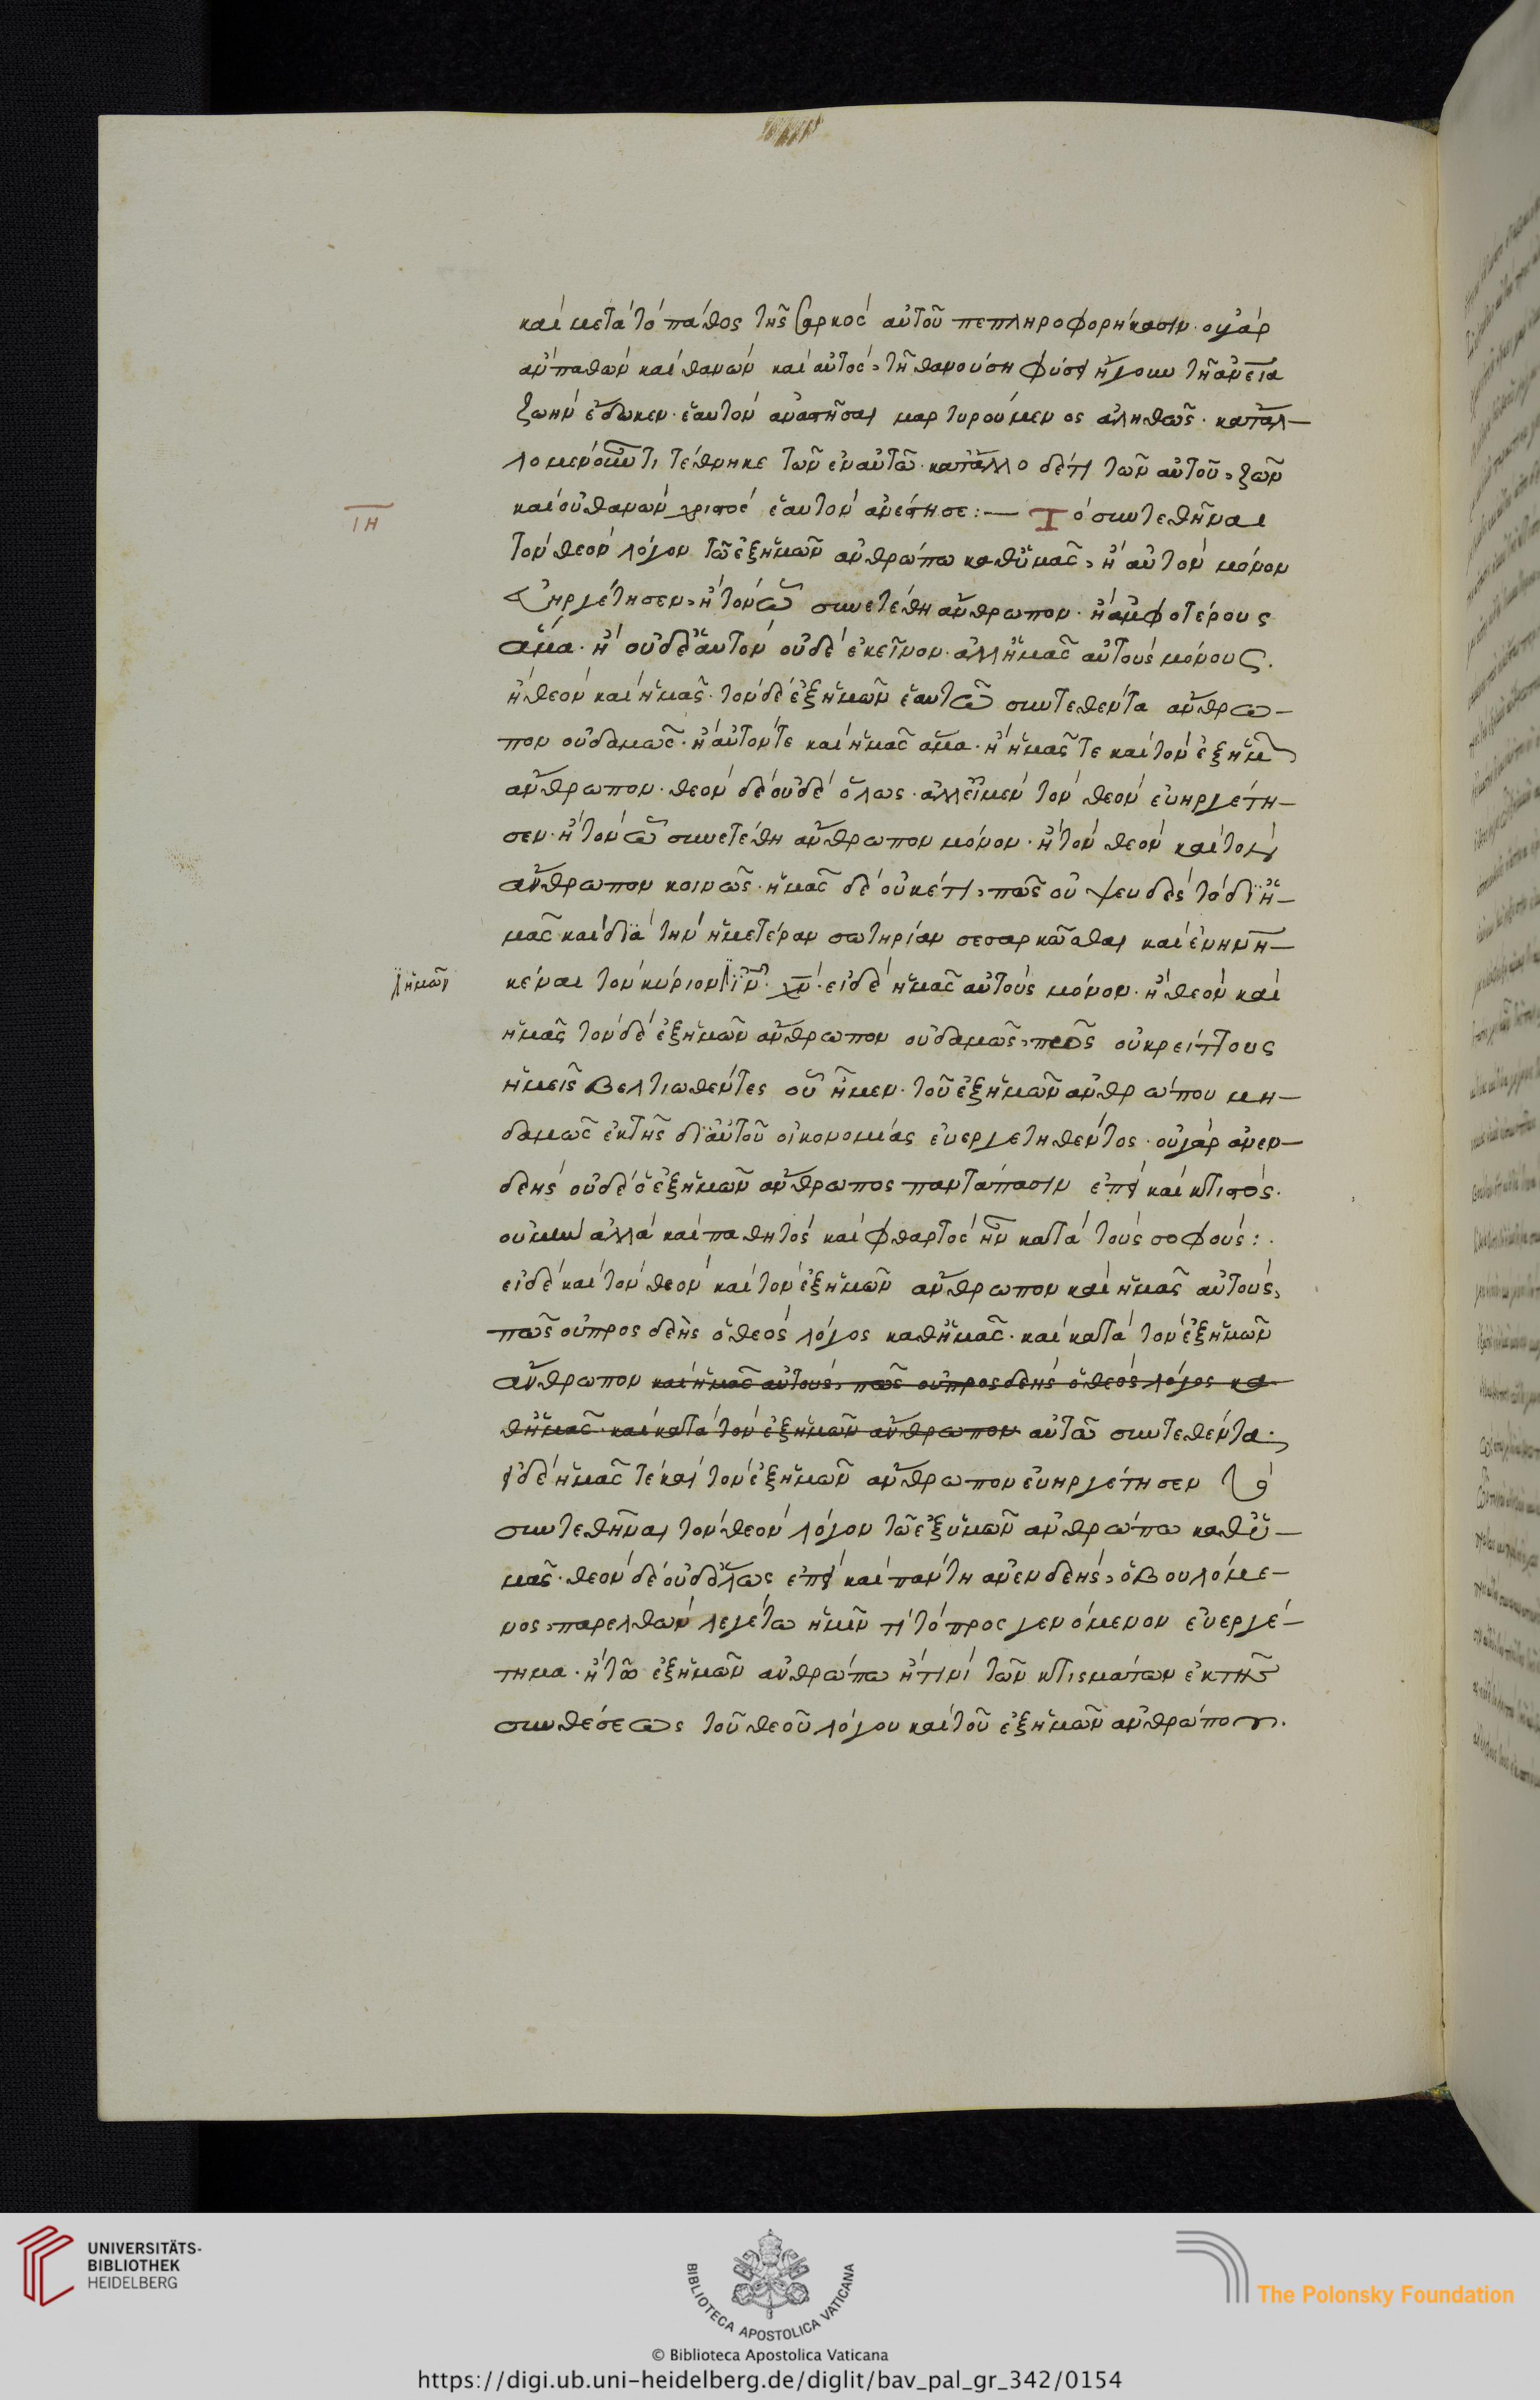 καὶ μετὰ τὸ πάθος τῆς σαρκὸς αὐτοῦ πεπληροφορήκασιν· ὁ γὰρ
ἂν παθὼν καὶ θανὼν καὶ αὐτὸς, τῇ θανούσῃ φύσει ἤγουν τῇ
ζωὴν ἔδωκεν· ἑαυτὸν ἀναστῆσαι μαρτυρούμενος ἀληθῶς· κατ' ἄλ—
λο μὲν τέθνηκε τῶν ἐν αὐτῷ· κατ' ἄλλο δέ τι τῶν αὐτοῦ, ζῶν
ΙΗ
καὶ οὐ θανὼν χριστὸς ἑαυτὸν ἀνέστησε:— Τὸ συντεθῆναι
τὸν θεὸν λόγον τῷ ἐξ ἡμῶν ἀνθρώπῳ καθ' ὑμᾶς, ἢ αὐτὸν μόνον
εὐηργέτησεν, ἢ τὸν ᾧ συνετέθη ἄνθρωπον· ἢ ἀμφοτέρους
ἅμα· ἢ οὐδ' ἑαυτὸν οὐδὲ ἐκεῖνον· ἀλλ' ἡμᾶς αὐτοὺς μόνους.
ἢ θεὸν καὶ ἡμᾶς· τὸν δὲ ἐξ ἡμῶν ἑαυτῷ συντεθέντα ἄνθρω—
πον οὐδαμῶς· ἢ αὐτόν τε καὶ ἡμᾶς ἅμα· ἢ ἡμᾶς τε καὶ τὸν ἐξ ἡμῶν
ἄνθρωπον· θεὸν δὲ οὐδὲ ὅλως· ἀλλ' εἰ μὲν τὸν θεὸν εὐηργέτη—
σεν· ἢ τὸν ᾧ συνετέθη ἄνθρωπον μόνον· ἢ τὸν θεὸν καὶ τὸν
ἄνθρωπον κοινῶς· ἡμᾶς δὲ οὐκέτι, πῶς οὐ ψευδὲς τὸ δι' ἡ—
μᾶς καὶ διὰ τὴν ἡμετέραν σωτηρίαν σεσαρκῶσθαι καὶ ἐνην̅η̅—
ἡμῶν
κέναι τὸν κύριον ι̅ν̅ χ̅ν̅· εἰ δὲ ἡμᾶς αὐτοὺς μόνον· ἢ θεὸν καὶ
ἡμᾶς τὸν δὲ ἐξ ἡμῶν ἄνθρωπον οὐδαμῶς, πῶς οὐ κρείττους
ἡμεῖς βελτιωθέντες οὗ ἦμεν· τοῦ ἐξ ἡμῶν ἀνθρώπου μη—
δαμῶς ἐκ τῆς δι' αὐτοῦ οἰκονομίας εὐεργετηθέντος· οὐ γὰρ ἀνεν—
δεὴς οὐδὲ ὁ ἐξ ἡμῶν ἄνθρωπος παντάπασιν ἐπεὶ καὶ κτιστός.
οὐ μὴν ἀλλὰ καὶ παθητὸς καὶ φθαρτὸς ἦν κατὰ τοὺς σοφούς:.
εἰ δὲ καὶ τὸν θεὸν καὶ τὸν ἐξ ἡμῶν ἄνθρωπον καὶ ἡμᾶς αὐτούς,
πῶς οὐ προσδεὴς ὁ θεὸς λόγος καθ' ἡμᾶς· καὶ κατὰ τὸν ἐξ ἡμῶν
ἄνθρωπον καὶ ἡμᾶς αὐτοὺς, πῶς οὐ προσδεὴς ὁ θεὸς λόγος κα
θ' ἡμᾶς· καὶ κατὰ τὸν ἐξ ἡμῶν ἄνθρωπον αὐτῷ συντεθέντα·
εἰ δὲ ἡμᾶς τε καὶ τὸν ἐξ ἡμῶν ἄνθρωπον εὐηργέτησεν τὸ
συντεθῆναι τὸν θεὸν λόγον τῷ ἐξ ὑμῶν ἀνθρώπῳ καθ' ὑ—
μᾶς· θεὸν δὲ οὐδ' ὅλως ἐπεὶ καὶ πάντη ἀνενδεής, ὁ βουλόμε—
νος, παρελθὼν λεγέτω ἡμῖν τί τὸ προσγενόμενον εὐεργέ—
τημα· ἢ τῷ ἐξ ἡμῶν ἀνθρώπῳ ἤ τινι τῶν κτισμάτων ἐκ τῆς
συνθέσεως τοῦ θεοῦ λόγου καὶ τοῦ ἐξ ἡμῶν ἀνθρώπου.
UNIVERSITÄTS-
BIBLIOTHEK
HEIDELBERG
BIBLIOTECA APOSTOLICA VATICANA
The Polonsky Foundation
© Biblioteca Apostolica Vaticana
https://digi.ub.uni-heidelberg.de/diglit/bav_pal_gr_342/0154